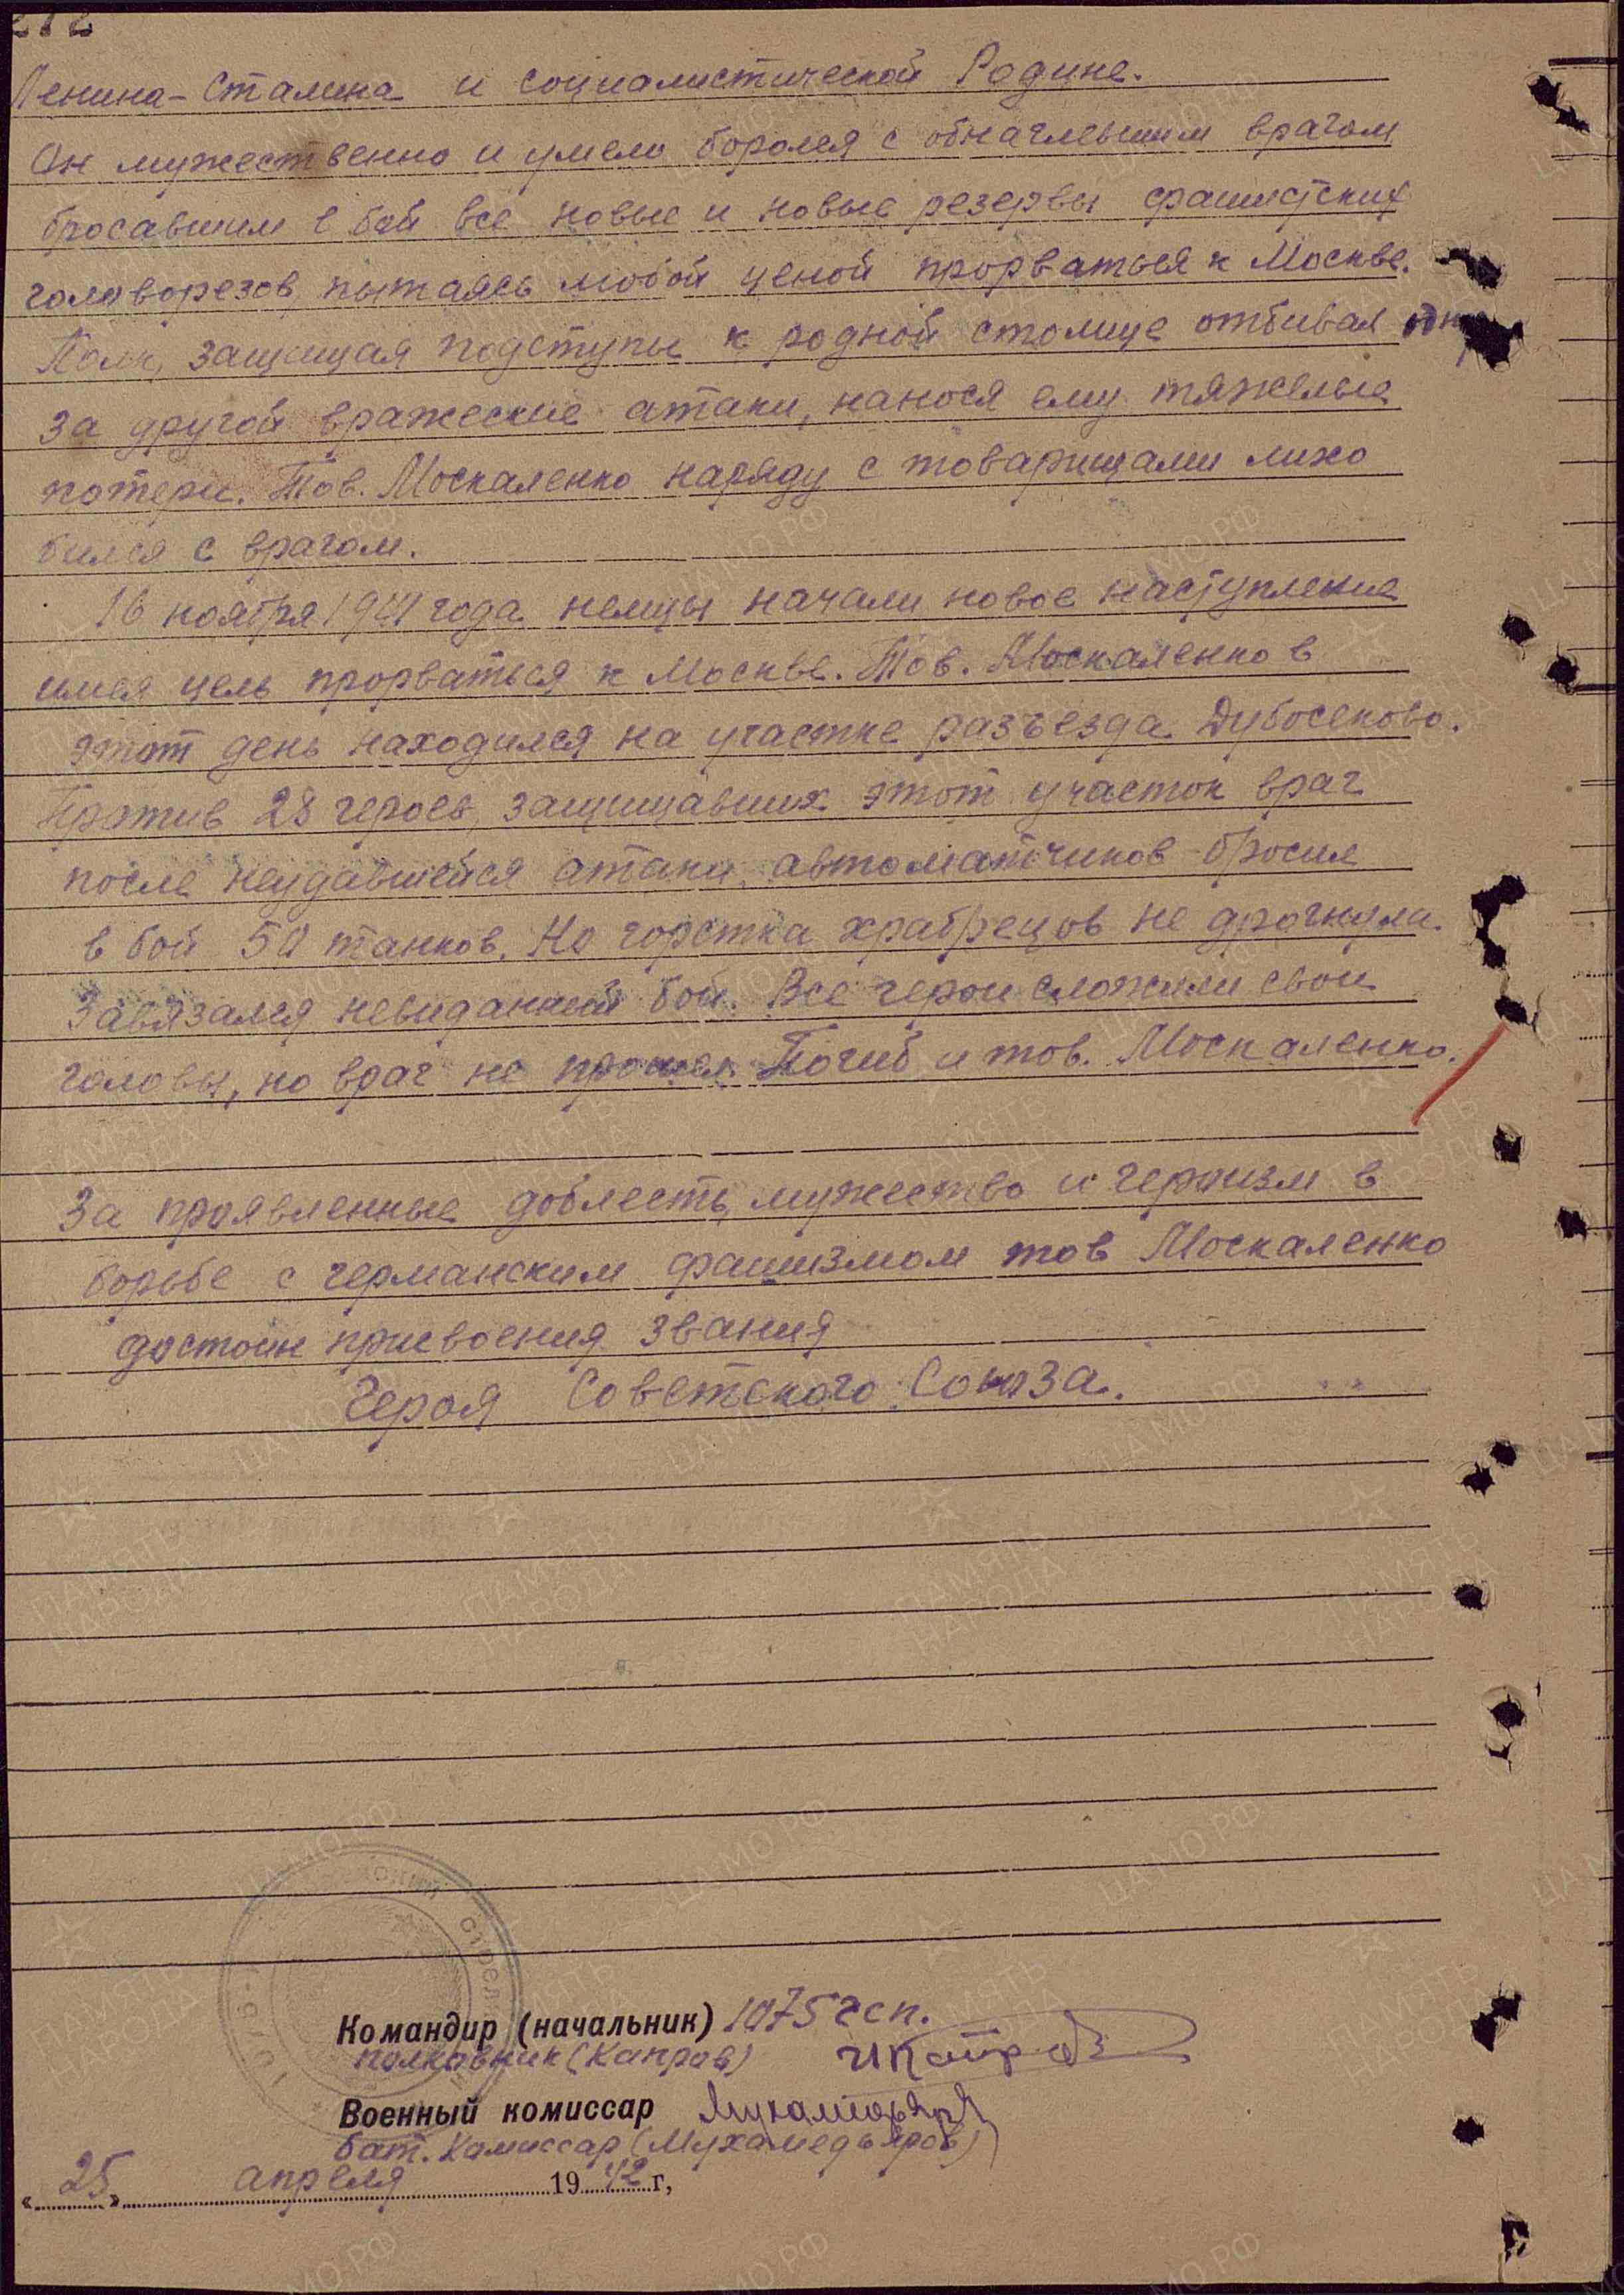 272
Ленина-Сталина и социалистической Родине.
Он мужественно и умело боролся с обнаглевшим врагом
бросавшим в бой все новые и новые резервы фашистских
головорезов, пытаясь любой ценой прорваться к Москве.
Полк, защищая подступы к родной столице отбивал одну
за другой вражеские атаки, нанося ему тяжелые
потери. Тов. Москаленко наряду с товарищами лихо
бился с врагом.
16 ноября 1941 года немцы начали новое наступление
имея цель прорваться к Москве. Тов. Москаленко в
этот день находился на участке разъезда Дубосеково.
Против 28 героев, защищавших этот участок враг
после неудавшейся атаки автоматчиков бросил
в бой 50 танков. Но горстка храбрецов не дрогнула.
Завязался невиданный бой. Все герои сложили свои
головы, но враг не прошел. Погиб и тов. Москаленко.
За проявленные доблесть, мужество и героизм в
борьбе с германским фашизмом тов Москаленко
достоин присвоения звания
Героя Советского Союза.
Командир (начальник) 1075 гсп.
полковник (Капров) ИКапров
Военный комиссар Мухамедьяров
бат. Комиссар (Мухамедьяров)
«25» апреля 1942 г,